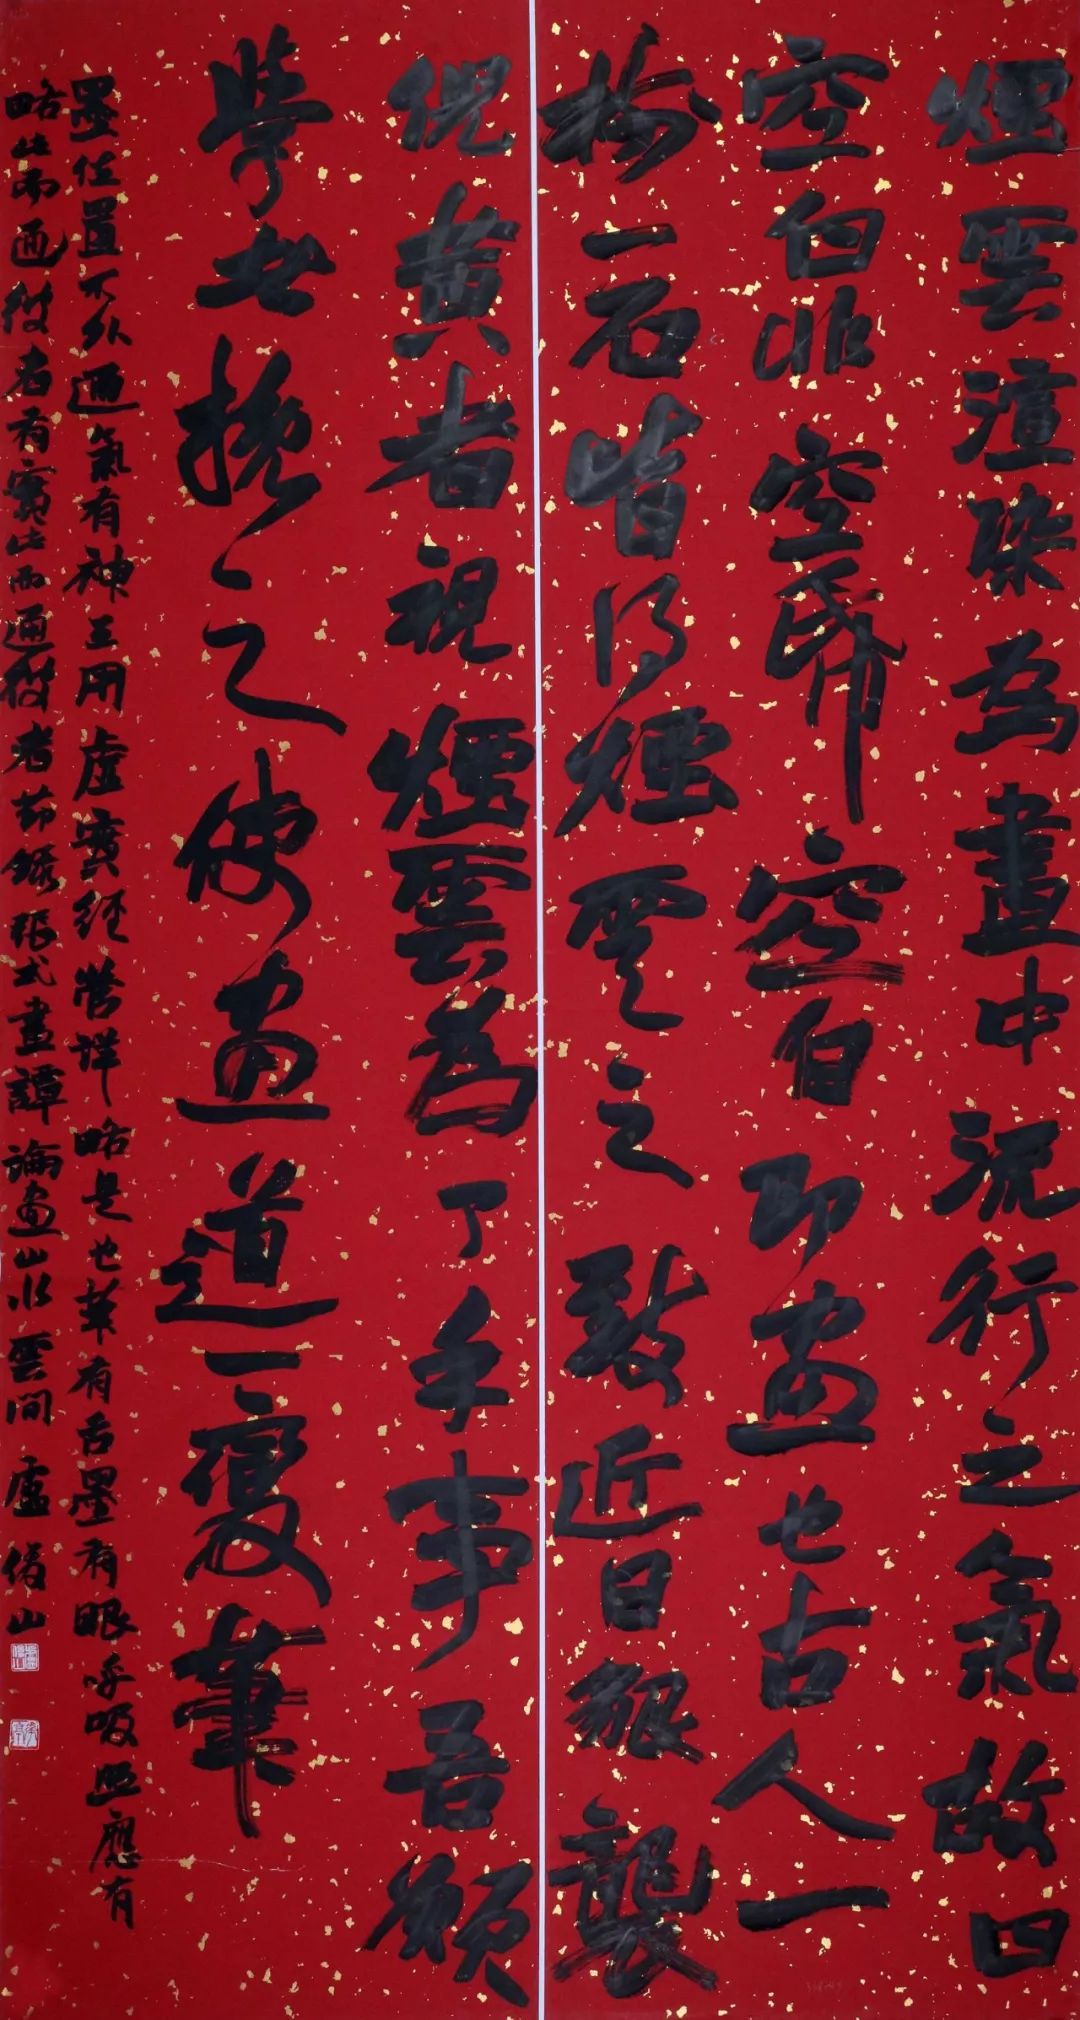 煙雲渲染為畫中流行之氣故曰
空白非空帋空白即画也古人一
樹一石皆得煙雲之致近日貌襲
倪黄者視煙雲為了手事吾願
學者挽之使画道一變筆
墨位置不外通氣有神三用虛實經營詳略是也筆有舌墨有眼呼吸照應有
略此而通彼者有實此而通彼者節錄張式畫譚論画山水雲間盧俊山